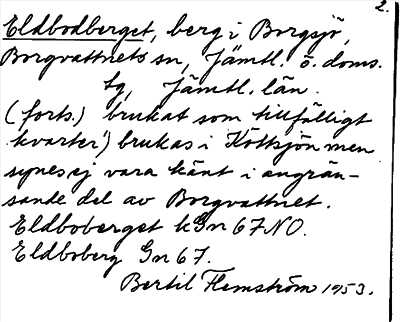 2.
Eldbodberget, berg i Borgsjö,
Borgvattnets sn, Jämtl. ö. doms.
sg, Jämtl. län.
(forts.) brukat som tillfälligt
kvarter) brukas i Kölsjön men
synes ej vara känt i angrän-
sande del av Borgvattnet.
Eldboberget kGn 67 NO.
Eldboberg Gn 67.
Bertil Flemström 1953.